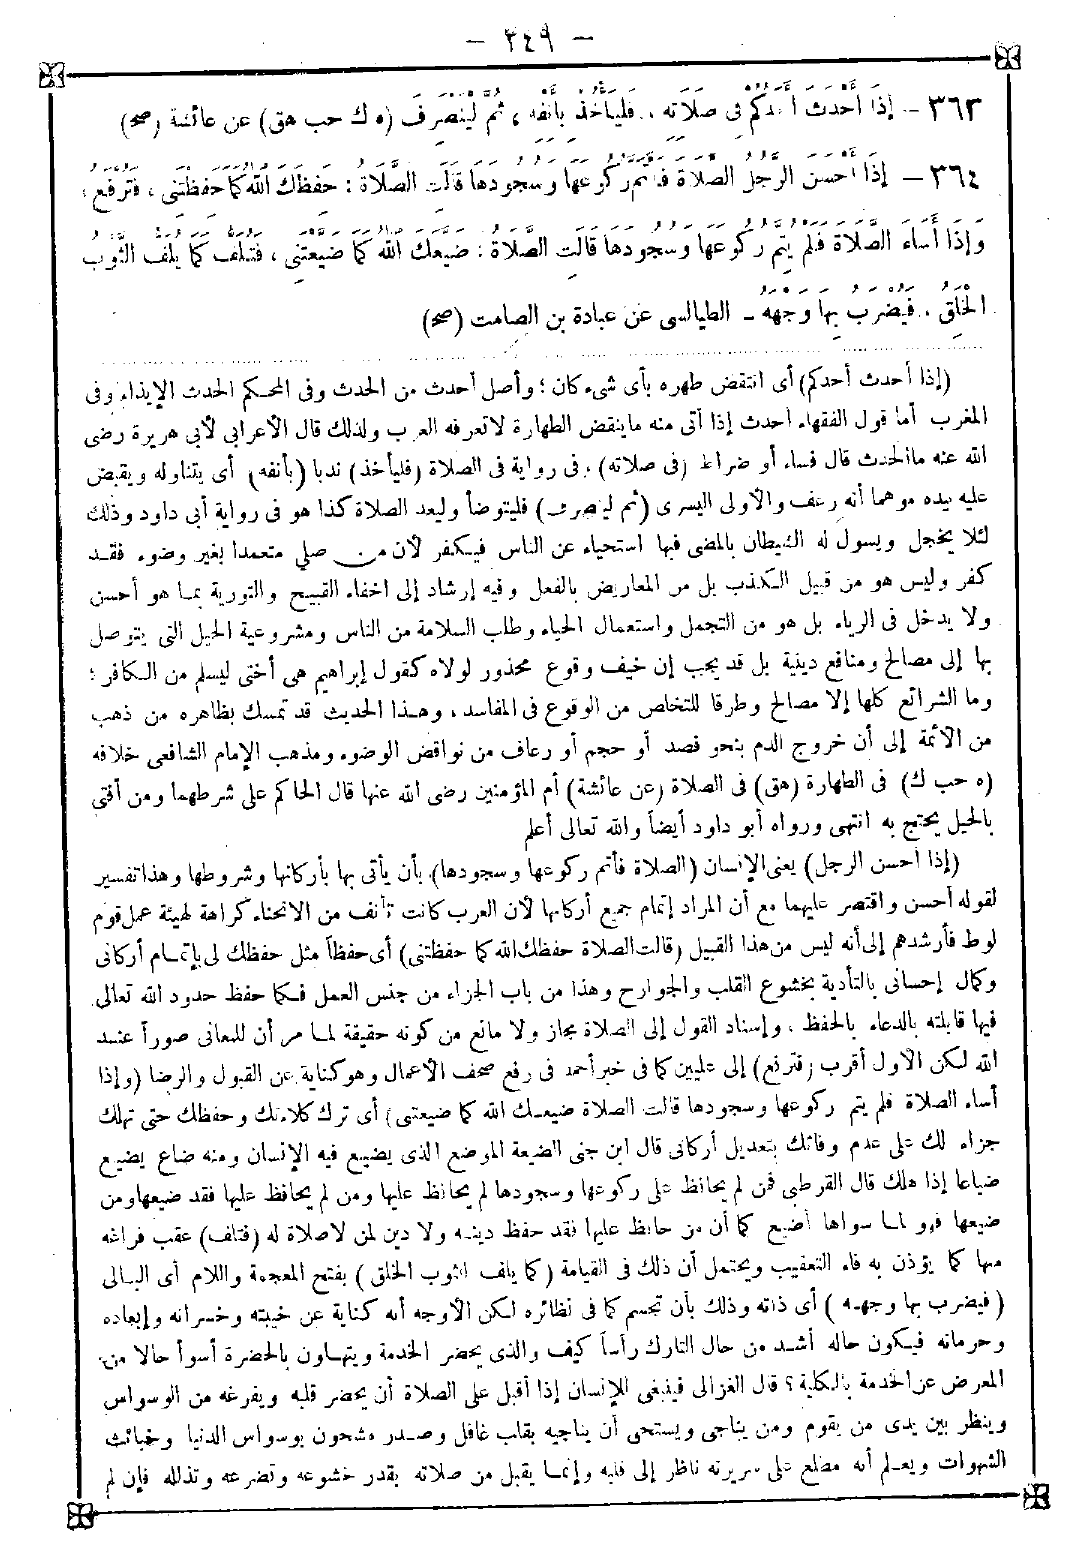 – ٣٤٩ –
٣٦٣ – إِذَا أَحْدَثَ أَحَدُكُمْ فِى صَلَاتِهِ ، فَلْيَأْخُذْ بِأَنْفِهِ ، ثُمَّ لْيَنْصَرِفْ (ه ك حب هق) عن عائشة (صح)
٣٦٤ – إِذَا أَحْسَنَ الرَّجُلُ الصَّلَاةَ فَأَتَمَّ رُكُوعَهَا وَسُجُودَهَا قَالَتِ الصَّلَاةُ : حَفِظَكَ اللهُ كَمَا حَفِظْتَنِى ، فَتُرْفَعُ ؛
وَإِذَا أَسَاءَ الصَّلَاةَ فَلَمْ يُتِمَّ رُكُوعَهَا وَسُجُودَهَا قَالَتِ الصَّلَاةُ : ضَيَّعَكَ اللهُ كَمَا ضَيَّعْتَنِى ، فَتُلَفُّ كَمَا يُلَفُّ الثَّوْبُ
الْخَلَقُ ، فَيُضْرَبُ بِهَا وَجْهُهُ – الطيالسى عن عبادة بن الصامت (صح)
(إذا أحدث أحدكم) أى انتقض طهره بأى شىء كان ؛ وأصل أحدث من الحدث وفى المحكم الحدث الإيذاء وفى
المغرب أما قول الفقهاء أحدث إذا أتى منه ما ينقض الطهارة لا تعرفه العرب ولذلك قال الأعرابى لأبى هريرة رضى
الله عنه ما الحدث قال فساء أو ضراط (فى صلاته) ، فى رواية فى الصلاة (فليأخذ) ندبا (بأنفه) أى يتناوله ويقبض
عليه بيده موهما أنه رعف والأولى اليسرى (ثم لينصرف) فليتوضأ وليعد الصلاة كذا هو فى رواية أبى داود وذلك
لئلا يخجل ويسول له الشيطان بالمضى فيها استحياء عن الناس فيكفر لأن من صلي متعمدا بغير وضوء فقد
كفر وليس هو من قبيل الكذب بل من المعاريض بالفعل وفيه إرشاد إلى اخفاء القبيح والتورية بما هو أحسن
ولا يدخل فى الرياء بل هو من التجمل واستعمال الحياء وطلب السلامة من الناس ومشروعية الحيل التى يتوصل
بها إلى مصالح ومنافع دينية بل قد يجب إن خيف وقوع محذور لولاه كقول إبراهيم هى أختى ليسلم من الكافر ؛
وما الشرائع كلها إلا مصالح وطرقا للتخلص من الوقوع فى المفاسد ، وهذا الحديث قد تمسك بظاهره من ذهب
من الأئمة إلى أن خروج الدم بنحو فصد أو حجم أو رعاف من نواقض الوضوء ومذهب الإمام الشافعى خلافه
(ه حب ك) فى الطهارة (هق) فى الصلاة (عن عائشة) أم المؤمنين رضى الله عنها قال الحاكم على شرطهما ومن أفتى
بالحيل يحتج به انتهى ورواه أبو داود أيضاً والله تعالى أعلم
(إذا أحسن الرجل) يعنى الإنسان (الصلاة فأتم ركوعها وسجودها) بأن يأتى بها بأركانها وشروطها وهذا تفسير
لقوله أحسن واقتصر عليهما مع أن المراد إتمام جميع أركانها لأن العرب كانت تأنف من الانحناء كراهة لهيئة عمل قوم
لوط فأرشدهم إلى أنه ليس من هذا القبيل (قالت الصلاة حفظك الله كما حفظتنى) أى حفظاً مثل حفظك لى بإتمام أركانى
وكمال إحسانى بالتأدية بخشوع القلب والجوارح وهذا من باب الجزاء من جنس العمل فكما حفظ حدود الله تعالى
فيها قابلته بالدعاء بالحفظ ، وإسناد القول إلى الصلاة مجاز ولا مانع من كونه حقيقة لما مر أن للمعانى صوراً عند
الله لكن الأول أقرب (فترفع) إلى عليين كما فى خبر أحمد فى رفع صحف الأعمال وهو كناية عن القبول والرضا (وإذا
أساء الصلاة فلم يتم ركوعها وسجودها قالت الصلاة ضيعك الله كما ضيعتنى) أى ترك كلاءتك وحفظك حتى تهلك
جزاء لك على عدم وفائك بتعديل أركانى قال ابن جنى الضيعة الموضع الذى يضيع فيه الإنسان ومنه ضاع يضيع
ضياعا إذا هلك قال القرطبى فمن لم يحافظ على ركوعها وسجودها لم يحافظ عليها ومن لم يحافظ عليها فقد ضيعها ومن
ضيعها فهو لما سواها أضيع كما أن من حافظ عليها فقد حفظ دينه ولا دين لمن لا صلاة له (فتلف) عقب فراغه
منها كما يؤذن به فاء التعقيب ويحتمل أن ذلك فى القيامة (كما يلف الثوب الخلق) بفتح المعجمة واللام أى البالى
(فيضرب بها وجهه) أى ذاته وذلك بأن تجسم كما فى نظائره لكن الأوجه أنه كناية عن خيبته وخسرانه وإبعاده
وحرمانه فيكون حاله أشد من حال التارك رأساً كيف والذى يحضر الخدمة ويتهاون بالحضرة أسوأ حالا من
المعرض عن الخدمة بالكلية ؟ قال الغزالى فينبغى للإنسان إذا أقبل على الصلاة أن يحضر قلبه ويفرغه من الوسواس
وينظر بين يدى من يقوم ومن يناجى ويستحى أن يناجيه بقلب غافل وصدر مشحون بوسواس الدنيا وخبائث
الشهوات ويعلم أنه مطلع على سريرته ناظر إلى قلبه وإنما يقبل من صلاته بقدر خشوعه وتضرعه وتذلله فإن لم